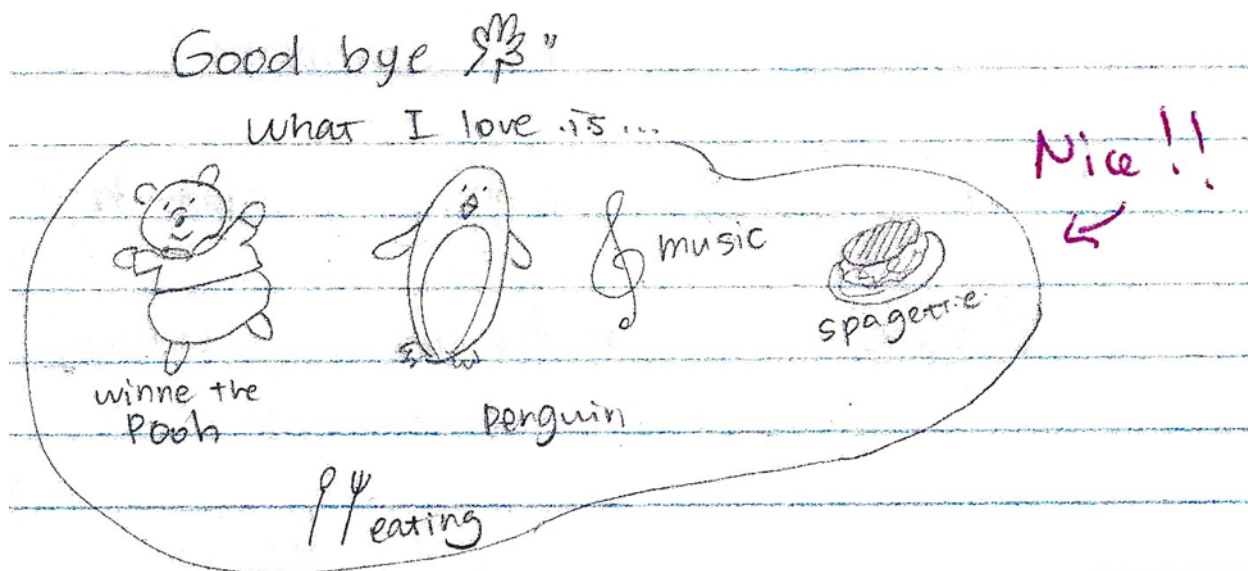 Good bye
What I love is...
Nice!!
music
spagettie
winne the
Pooh
penguin
eating